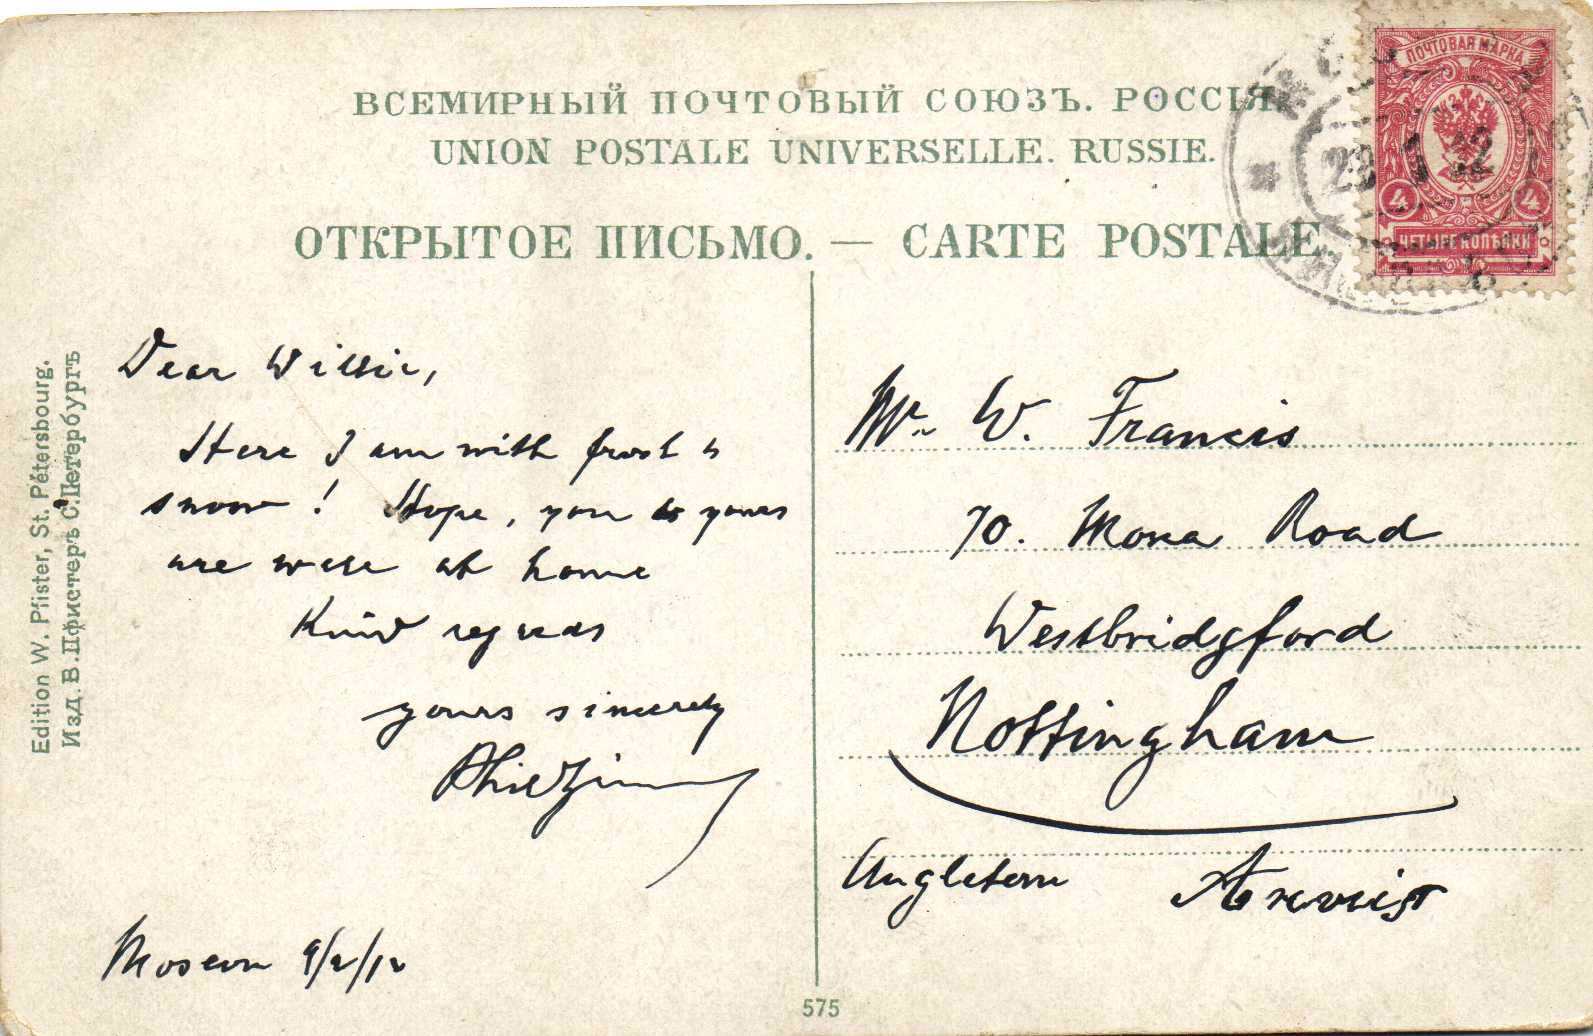 ВСЕМИРНЫЙ ПОЧТОВЫЙ СОЮЗЪ. РОССІЯ.
UNION POSTALE UNIVERSELLE. RUSSIE.
ОТКРЫТОЕ ПИСЬМО. — CARTE POSTALE.
ПОЧТОВАЯ МАРКА
4 4
ЧЕТЫРЕ КОПѢЙКИ
Edition W. Pfister, St. Pétersbourg.
Изд. В. Пфистеръ С. Петербургъ
Dear Willie,
Here I am with frost &
snow! Hope, you & yours
are well at home
Kind regards
yours sincerely
Moscow 9/2/12
Mr. W. Francis
70. Mona Road
Westbridgford
Nottingham
Angleterre
575